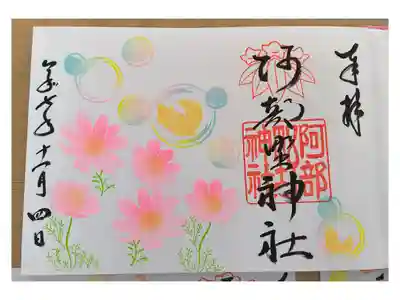 奉拝
阿部野神社
阿部
神社
令和七年十一月四日